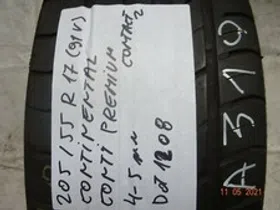 205/55 R 17 (91V)
CONTINENTAL
CONTI PREMIUM
CONTACT
2
4-5 mm
Dot 1208
A310
11 05 2021